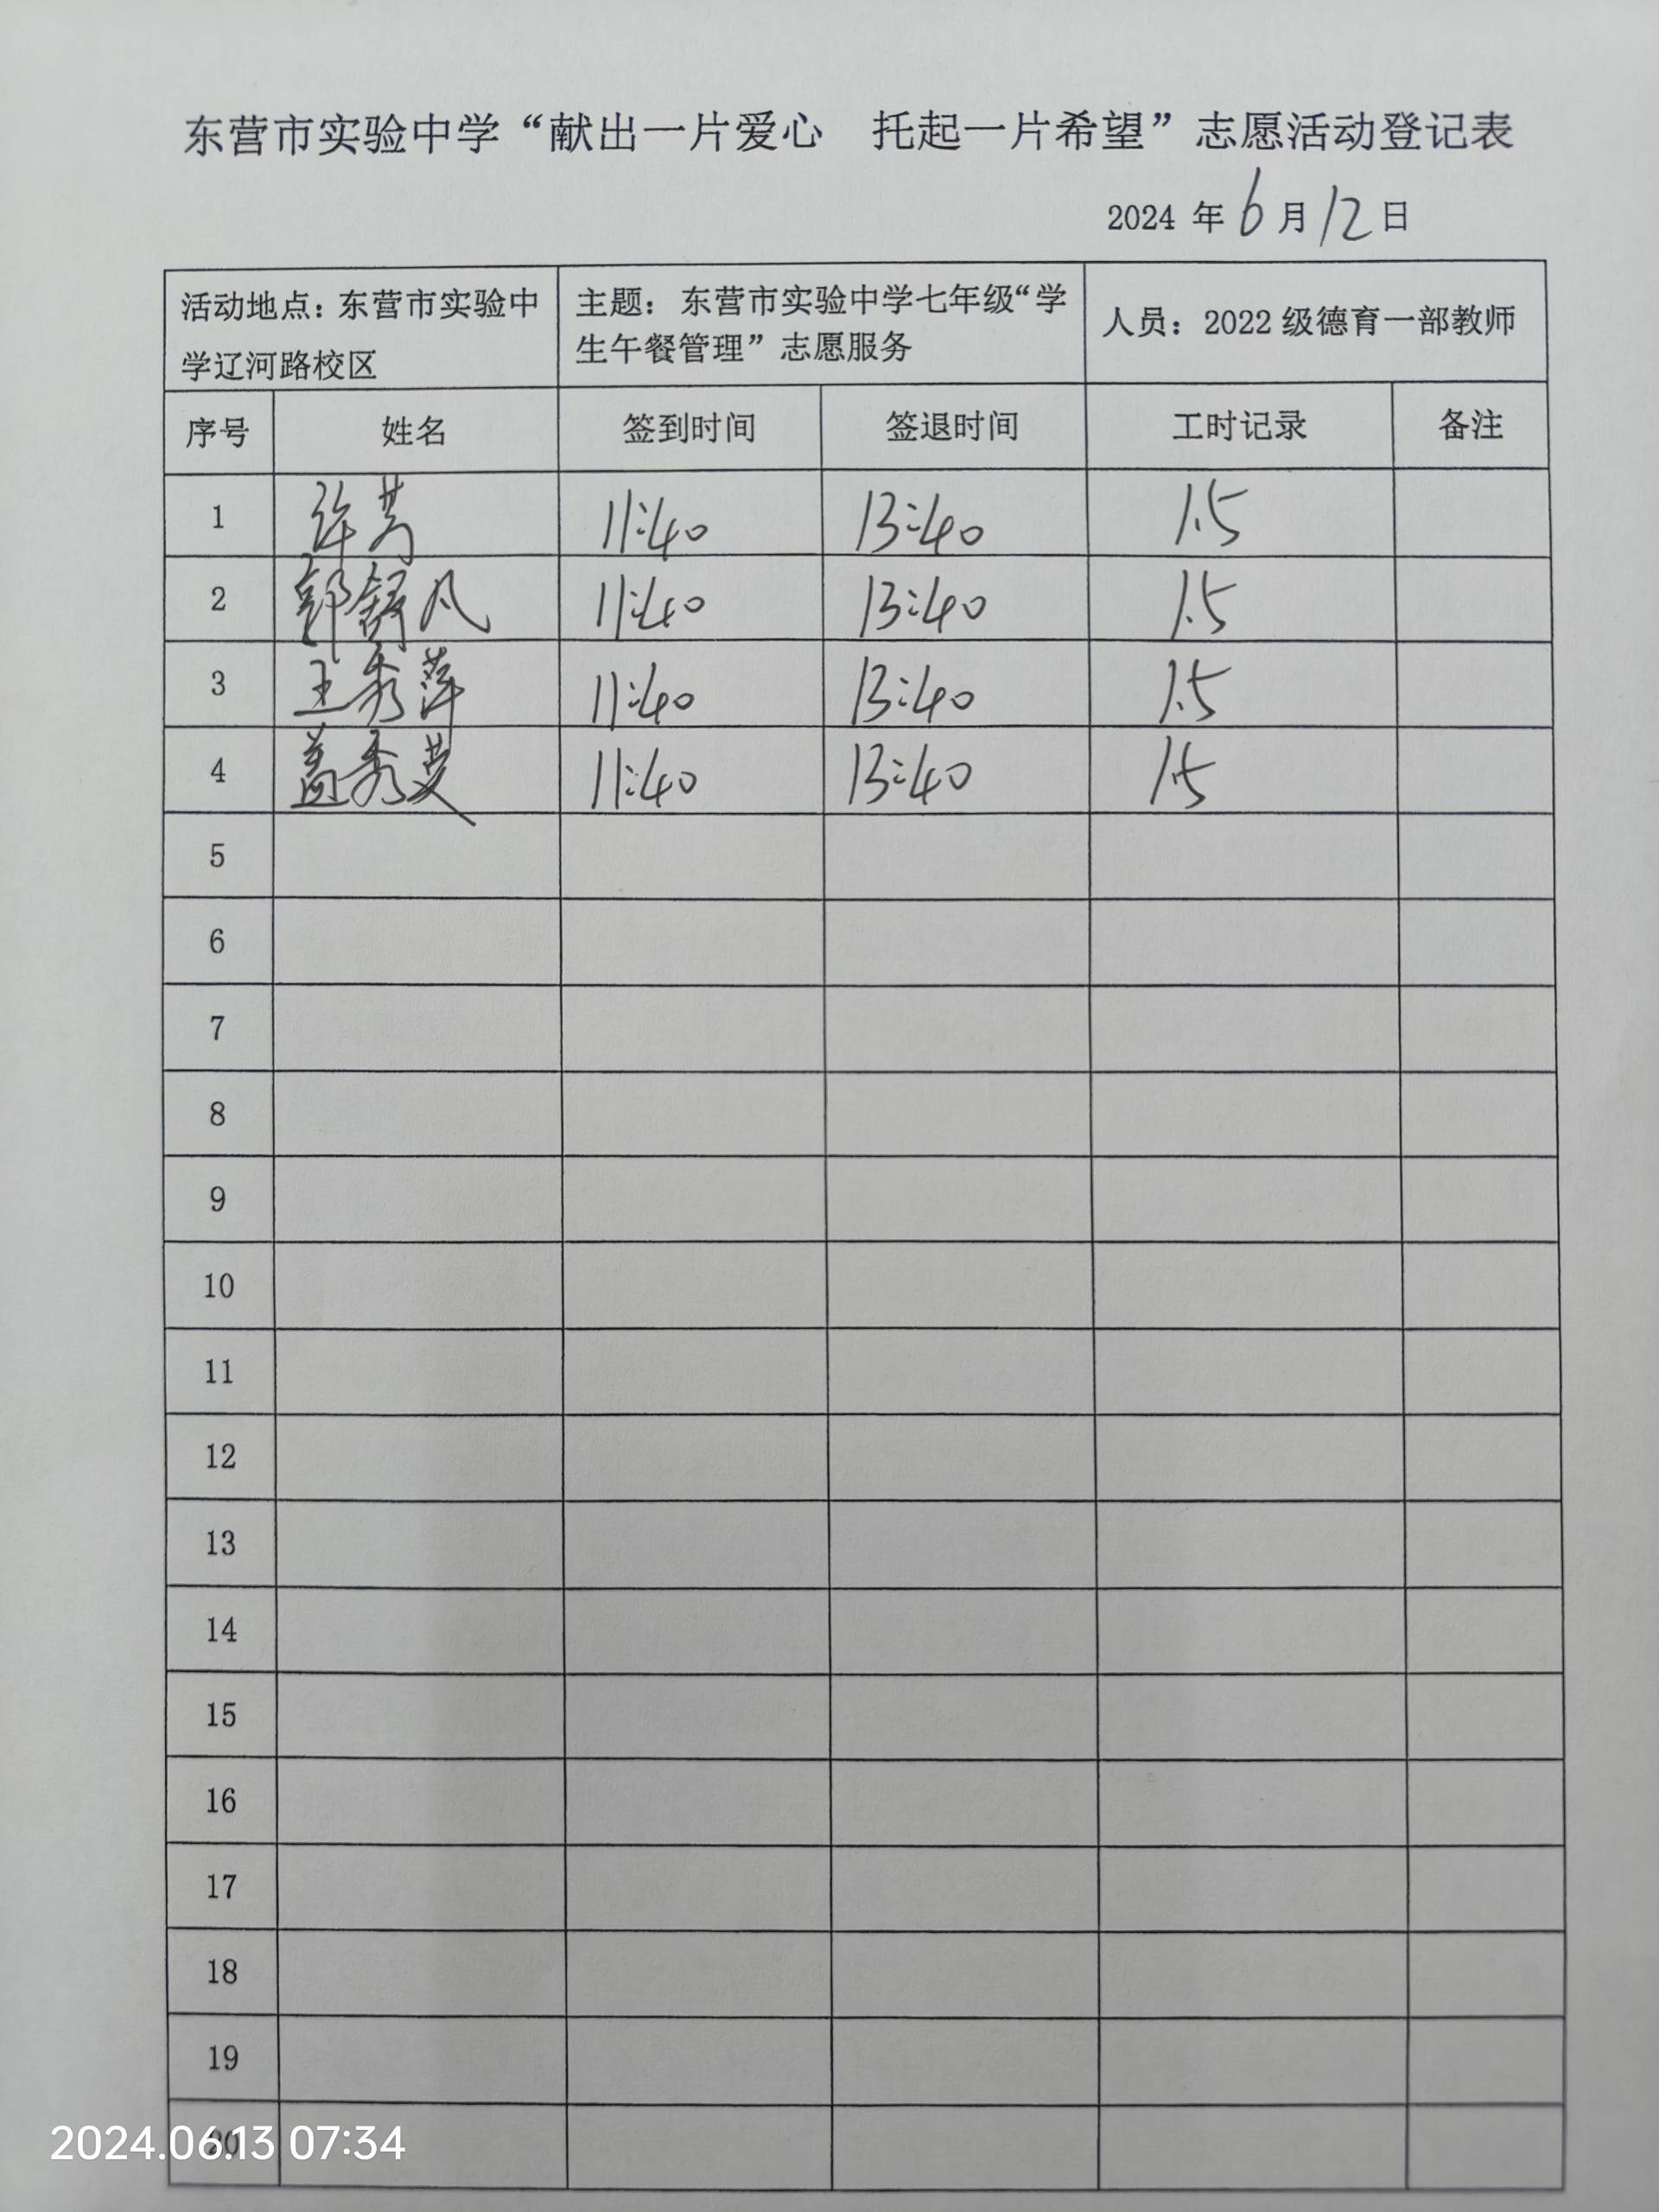 东营市实验中学“献出一片爱心 托起一片希望”志愿活动登记表
2024 年 6 月 12 日
活动地点：东营市实验中
学辽河路校区
主题：东营市实验中学七年级“学
生午餐管理”志愿服务
人员：2022 级德育一部教师
序号 姓名 签到时间 签退时间 工时记录 备注
1 许芳 11:40 13:40 1.5
2 郭舒凡 11:40 13:40 1.5
3 王秀萍 11:40 13:40 1.5
4 盖秀英 11:40 13:40 1.5
5
6
7
8
9
10
11
12
13
14
15
16
17
18
19
20
2024.06.13 07:34